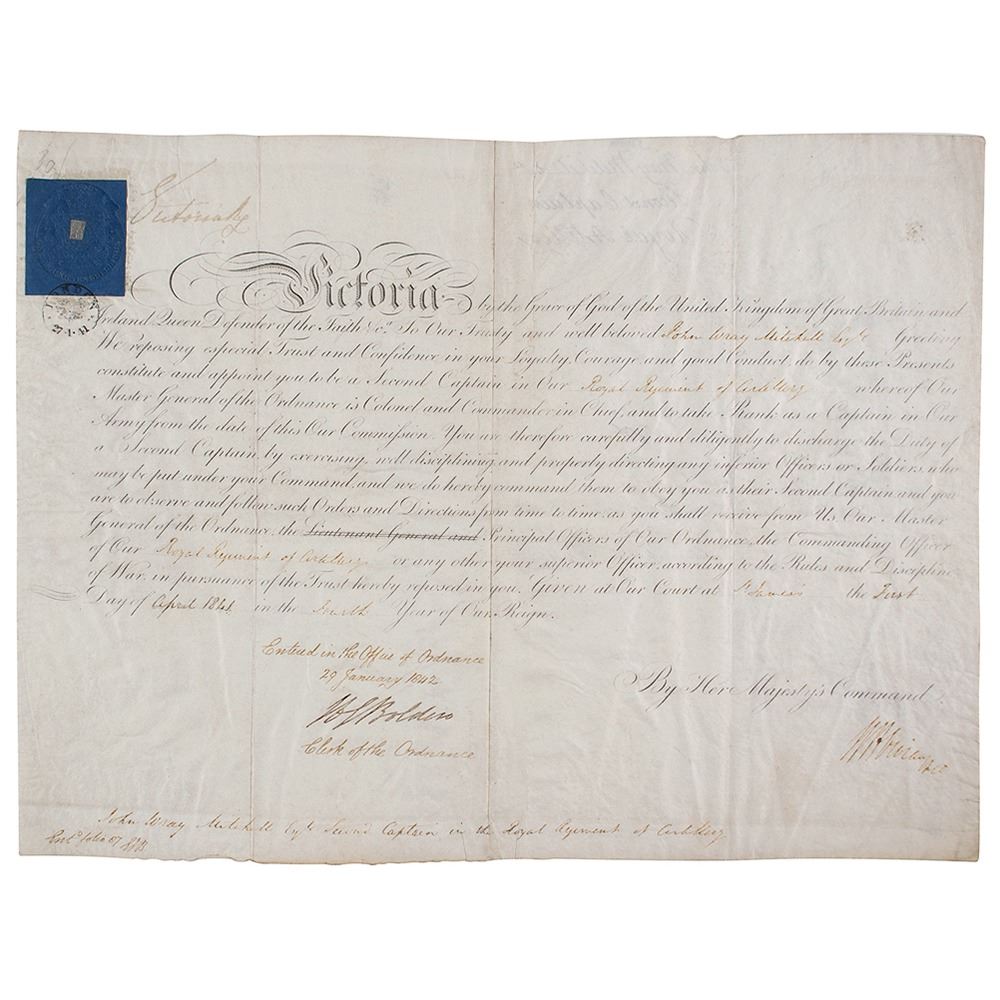 Victoria R
LONDON
27·1·41
Victoria by the Grace of God of the United Kingdom of Great Britain and
Ireland Queen Defender of the Faith &c. To Our Trusty and well beloved John Wray Mitchell Esqre Greeting
We reposing especial Trust and Confidence in your Loyalty, Courage, and good Conduct, do by these Presents
constitute and appoint you to be a Second Captain in Our Royal Regiment of Artillery whereof Our
Master General of the Ordnance is Colonel and Commander in Chief, and to take Rank as a Captain in Our
Army from the date of this Our Commission. You are therefore carefully and diligently to discharge the Duty of
a Second Captain by exercising, well disciplining and properly directing any inferior Officers or Soldiers, who
may be put under your Command, and we do hereby command them to obey you as their Second Captain and you
are to observe and follow such Orders and Directions from time to time, as you shall receive from Us, Our Master
General of the Ordnance, the Lieutenant General and Principal Officers of Our Ordnance, the Commanding Officer
of Our Royal Regiment of Artillery or any other your superior Officer, according to the Rules and Discipline
of War, in pursuance of the Trust hereby reposed in you. Given at Our Court at St James's the First
Day of April 1841 in the Fourth Year of Our Reign.
Entered in the Office of Ordnance
29 January 1842
Clerk of the Ordnance
By Her Majesty's Command
John Wray Mitchell Esqre Second Captain in the Royal Regiment of Artillery
Entd folio 87